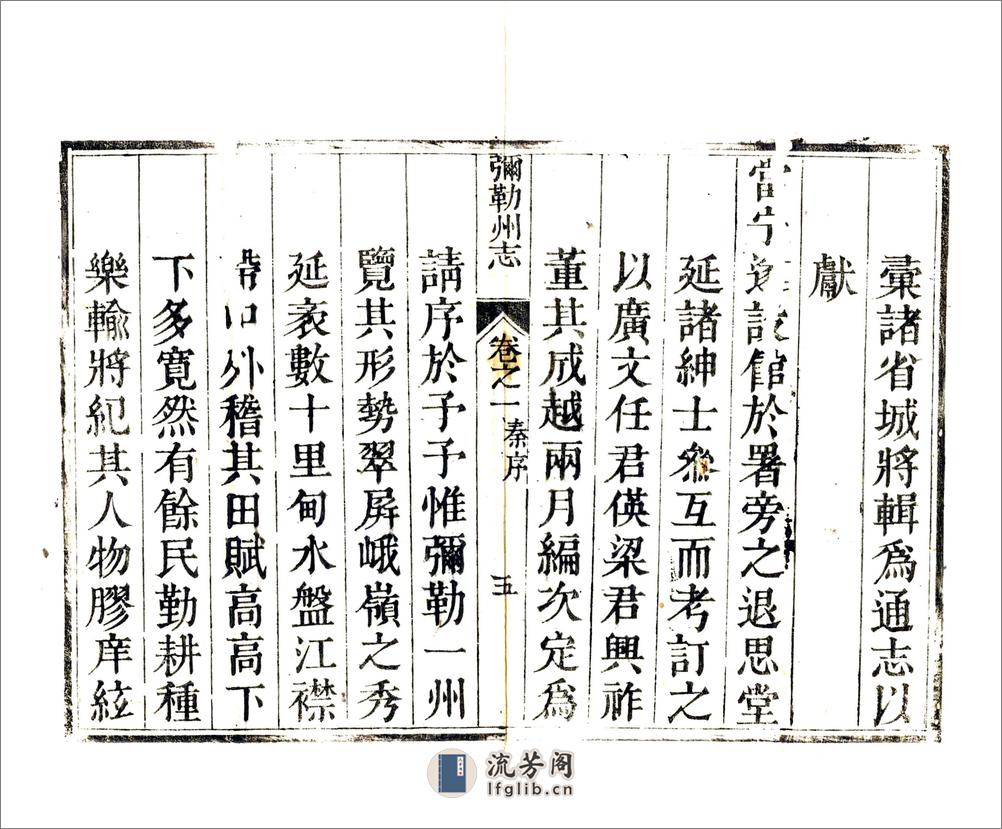 彙諸省城將輯爲通志以
獻
當宁遂設館於署旁之退思堂
延諸紳士叅互而考訂之
以廣文任君偀梁君興祚
董其成越兩月編次定爲
彌勒州志
卷之一
秦序
五
請序於予予惟彌勒一州
覽其形勢翠屏峨嶺之秀
延袤數十里甸水盤江襟
外稽其田賦高高下
下多寬然有餘民勤耕種
樂輸將紀其人物膠庠絃
流芳阁
lfglib.cn